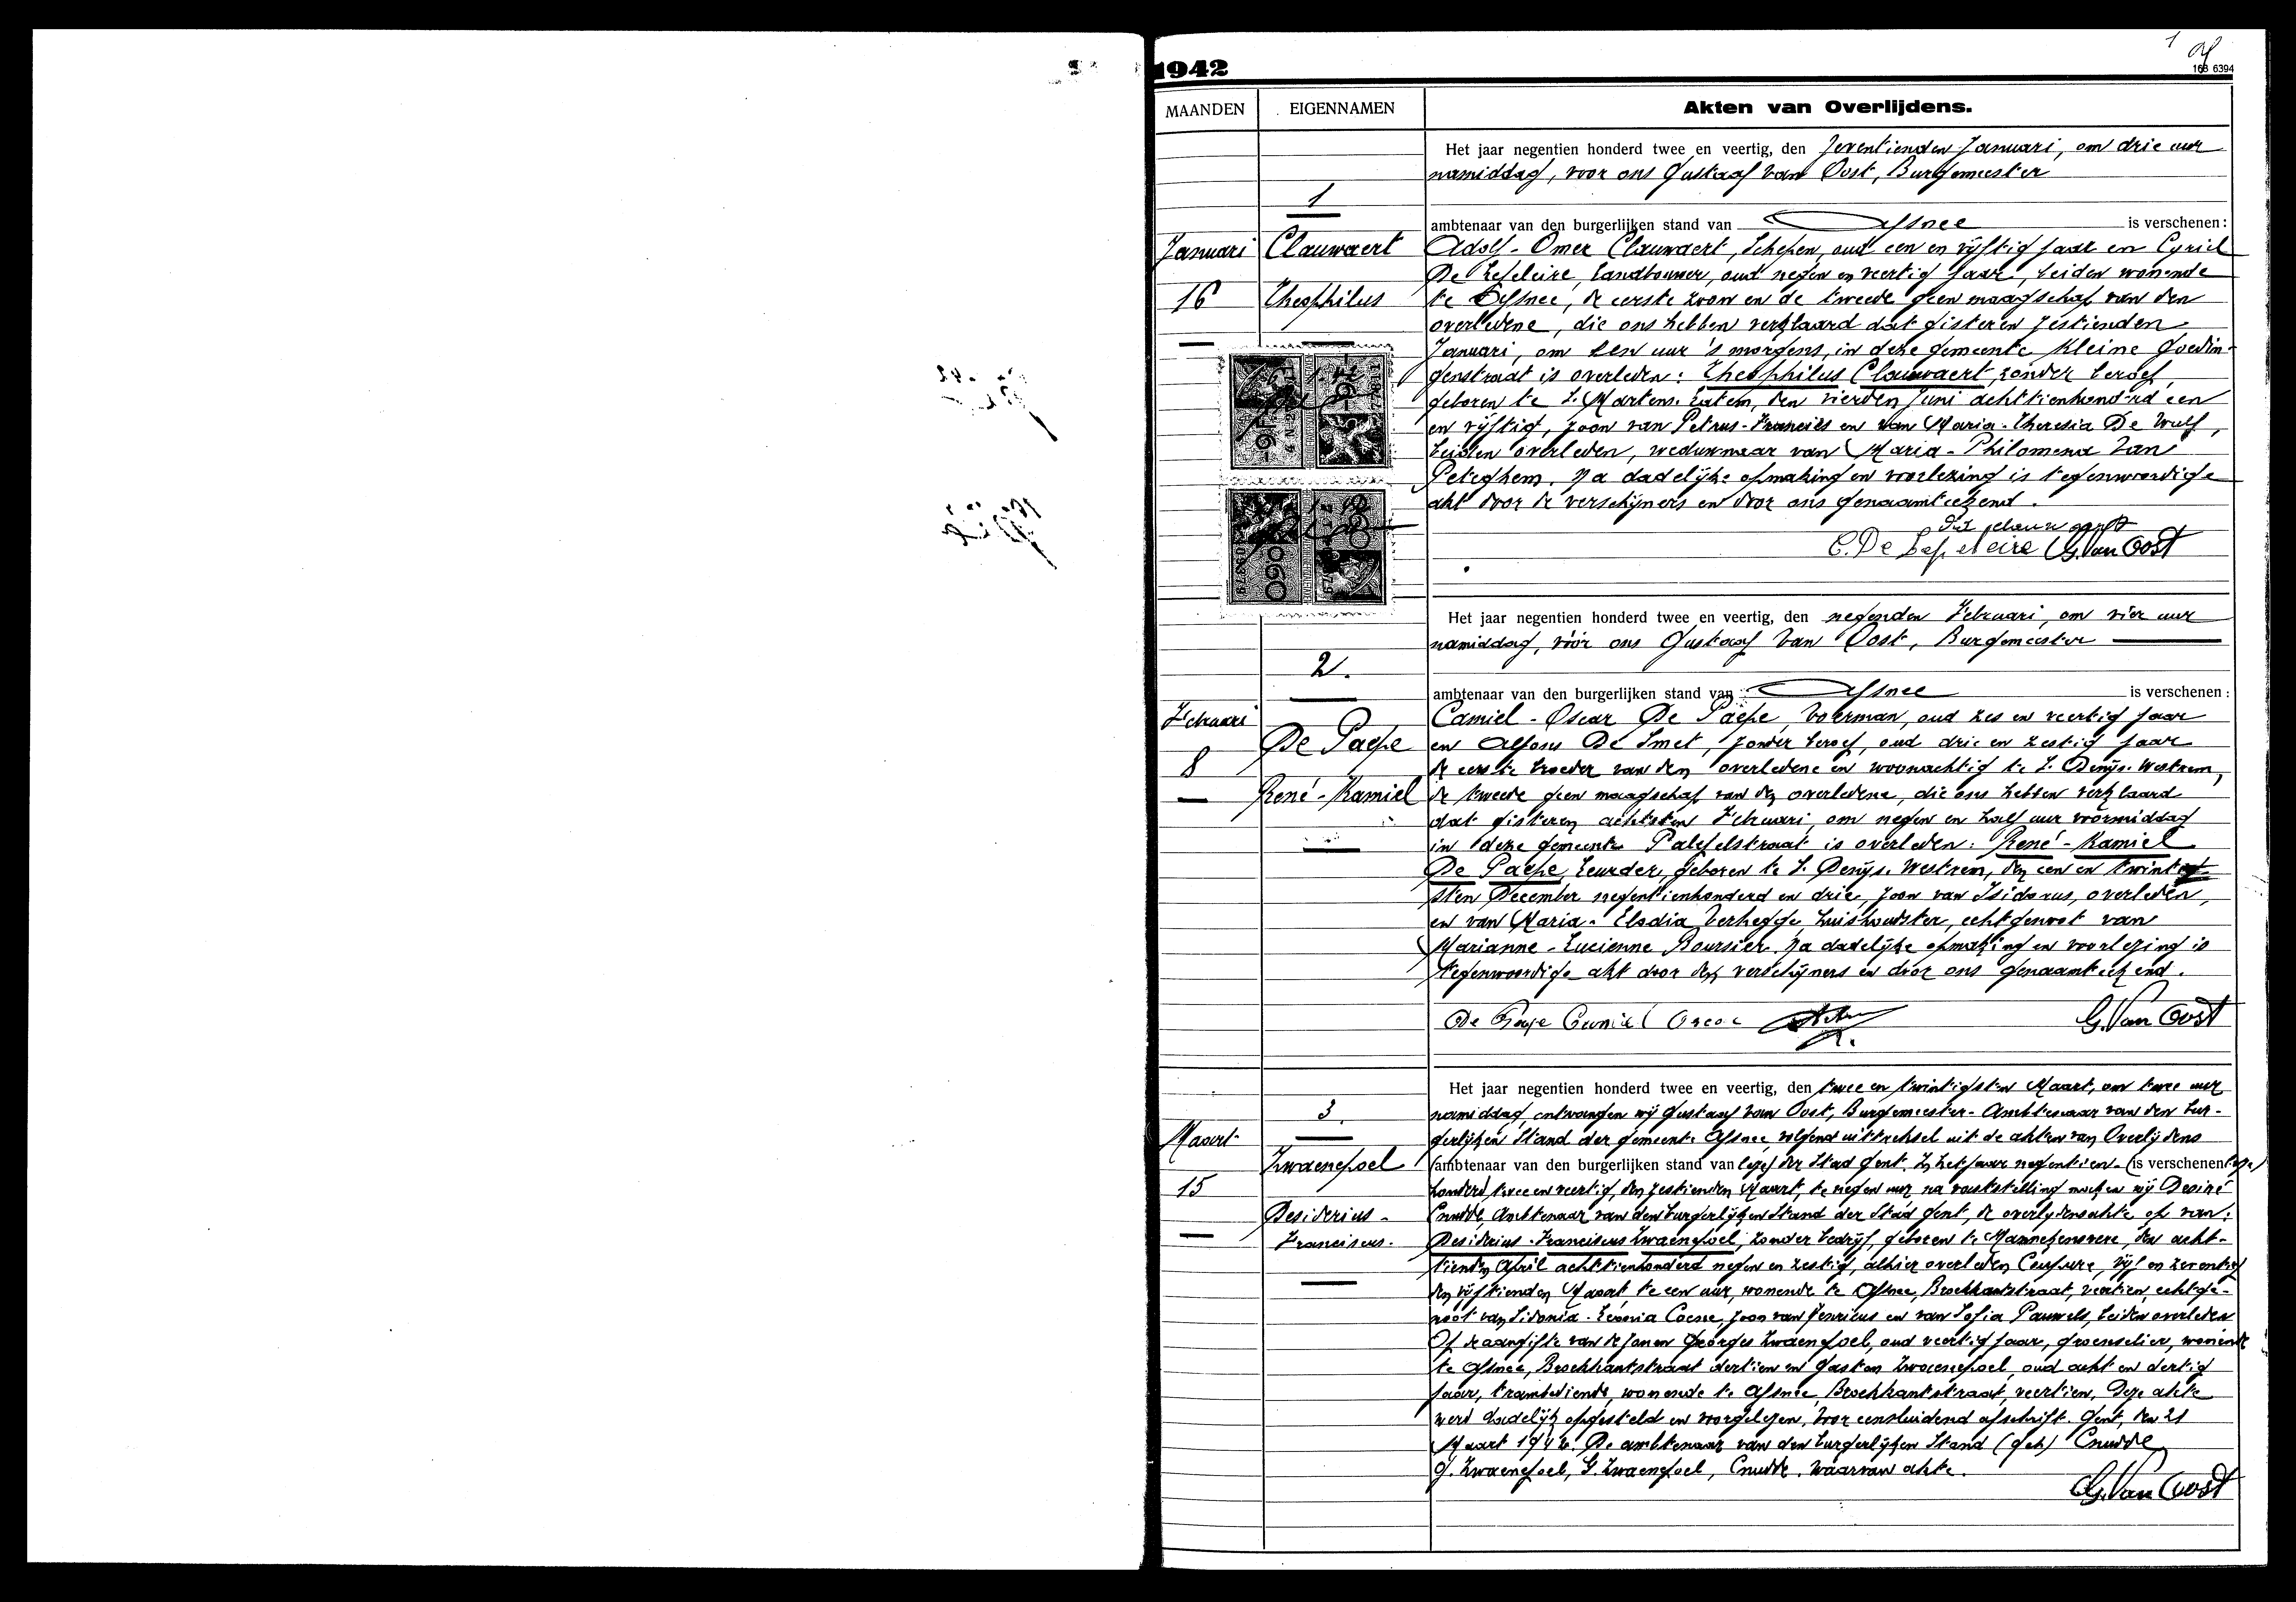 1
1942
168 6394
MAANDEN
EIGENNAMEN
Akten van Overlijdens.
1
Januari
Clauwaert
16
Theophilus
Het jaar negentien honderd twee en veertig, den zeventienden Januari, om drie uur
namiddag, voor ons Gustaaf Van Oost, Burgemeester
ambtenaar van den burgerlijken stand van Afsnee is verschenen:
Adolf-Omer Clauwaert, Schepen, oud een en vijftig jaar en Cyriel
De Lepeleire, landbouwer, oud negen en veertig jaar, beiden wonende
te Afsnee, de eerste zoon en de tweede geen maagschap van den
overledene, die ons hebben verklaard dat gisteren zestienden
Januari, om een uur 's morgens, in deze gemeente Kleine Goedin-
genstraat is overleden: Theophilus Clauwaert, zonder beroep,
geboren te S. Martens-Latem, den vierden Juni achttienhonderd een
en vijftig, zoon van Petrus-Francies en van Maria-Theresia De Wulf,
beiden overleden, weduwnaar van Maria-Philomena Van
Peteghem. Na dadelijke opmaking en voorlezing is tegenwoordige
akt door de verschijners en door ons genaamteekend.
C. De Lepeleire G. Van Oost
2.
Februari
De Paepe
8
René-Kamiel
Het jaar negentien honderd twee en veertig, den negenden Februari, om vier uur
namiddag, vóór ons Gustaaf Van Oost, Burgemeester
ambtenaar van den burgerlijken stand van Afsnee is verschenen:
Camiel-Oscar De Paepe, voerman, oud zes en veertig jaar
en Alfons De Smet, zonder beroep, oud drie en zestig jaar
de eerste broeder van den overledene en woonachtig te S. Denijs-Westrem,
de tweede geen maagschap van den overledene, die ons hebben verklaard
dat gisteren achtsten Februari, om negen en half uur voormiddag
in deze gemeente Palepelstraat is overleden: René-Kamiel
De Paepe, leurder, geboren te S. Denijs-Westrem, den een en twintig
sten December negentienhonderd en drie, zoon van Isidorus, overleden,
en van Maria-Elodia Verhegge, huishoudster, echtgenoot van
Marianne-Lucienne Boursier. Na dadelijke opmaking en voorlezing is
tegenwoordige akt door den verschijners en door ons genaamteekend.
De Paepe Camiel Oscar G. Van Oost
3.
Maart
Zwaenepoel
15
Desiderius-
Franciscus.
Het jaar negentien honderd twee en veertig, den twee en twintigsten Maart, om twee uur
namiddag, ontvangen wij Gustaaf Van Oost, Burgemeester-Ambtenaar van den bur-
gerlijken Stand der gemeente Afsnee, volgend uittreksel uit de akten van Overlijdens
(ambtenaar van den burgerlijken stand van der Stad Gent. In het jaar negentien- (is verschenen:
honderd twee en veertig, den zestienden Maart, te negen uur na vaststelling maken wij Desiré
Cnudde, Ambtenaar van den burgerlijken Stand der Stad Gent, de overlijdensakte op van:
Desiderius-Franciscus Zwaenepoel, zonder bedrijf, geboren te Mannekensvere, den acht-
tienden April achttienhonderd negen en zestig, alhier overleden Coupure, vijf en zeventig
den vijftienden Maart te een uur, wonende te Afsnee, Broekkantstraat, veertien, echtge-
noot van Sidonia-Leonia Coene, zoon van Henricus en van Sofia Pauwels, beiden overleden
Op de aangifte van de zonen Georges Zwaenepoel, oud veertig jaar, groenselier, wonende
te Afsnee, Broekkantstraat dertien en Gaston Zwaenepoel, oud acht en dertig
jaar, trambediende, wonende te Afsnee, Broekkantstraat, veertien. Deze akte
werd dadelijk opgesteld en voorgelezen. Voor eensluidend afschrift. Gent, den 21
Maart 1942. De ambtenaar van den burgerlijken Stand (get) Cnudde,
G. Zwaenepoel, G. Zwaenepoel, Cnudde. Waarvan akte.
G. Van Oost